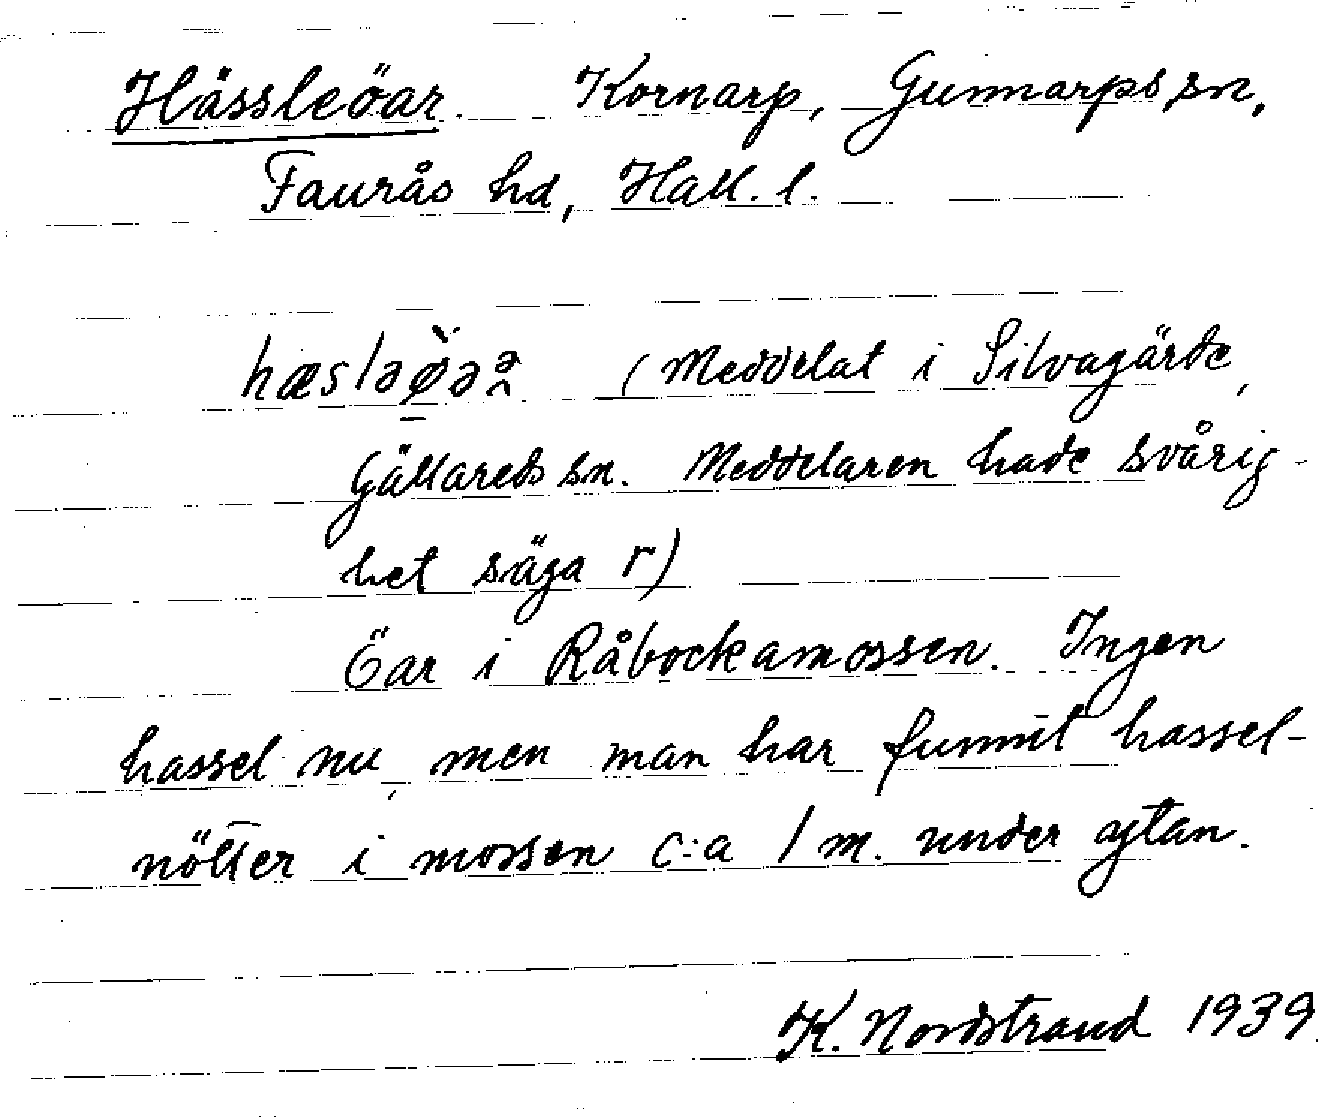 Hässleöar. Kornarp, Gunnarps sn,
Faurås hd, Hall. l.
(Meddelat i Silvagärde,
Gällareds sn. Meddelaren hade svårig-
het säga r)
Öar i Råbockamossen. Ingen
hassel nu, men man har funnit hassel-
nötter i mossen c:a 1 m. under ytan.
K. Nordstrand 1939.